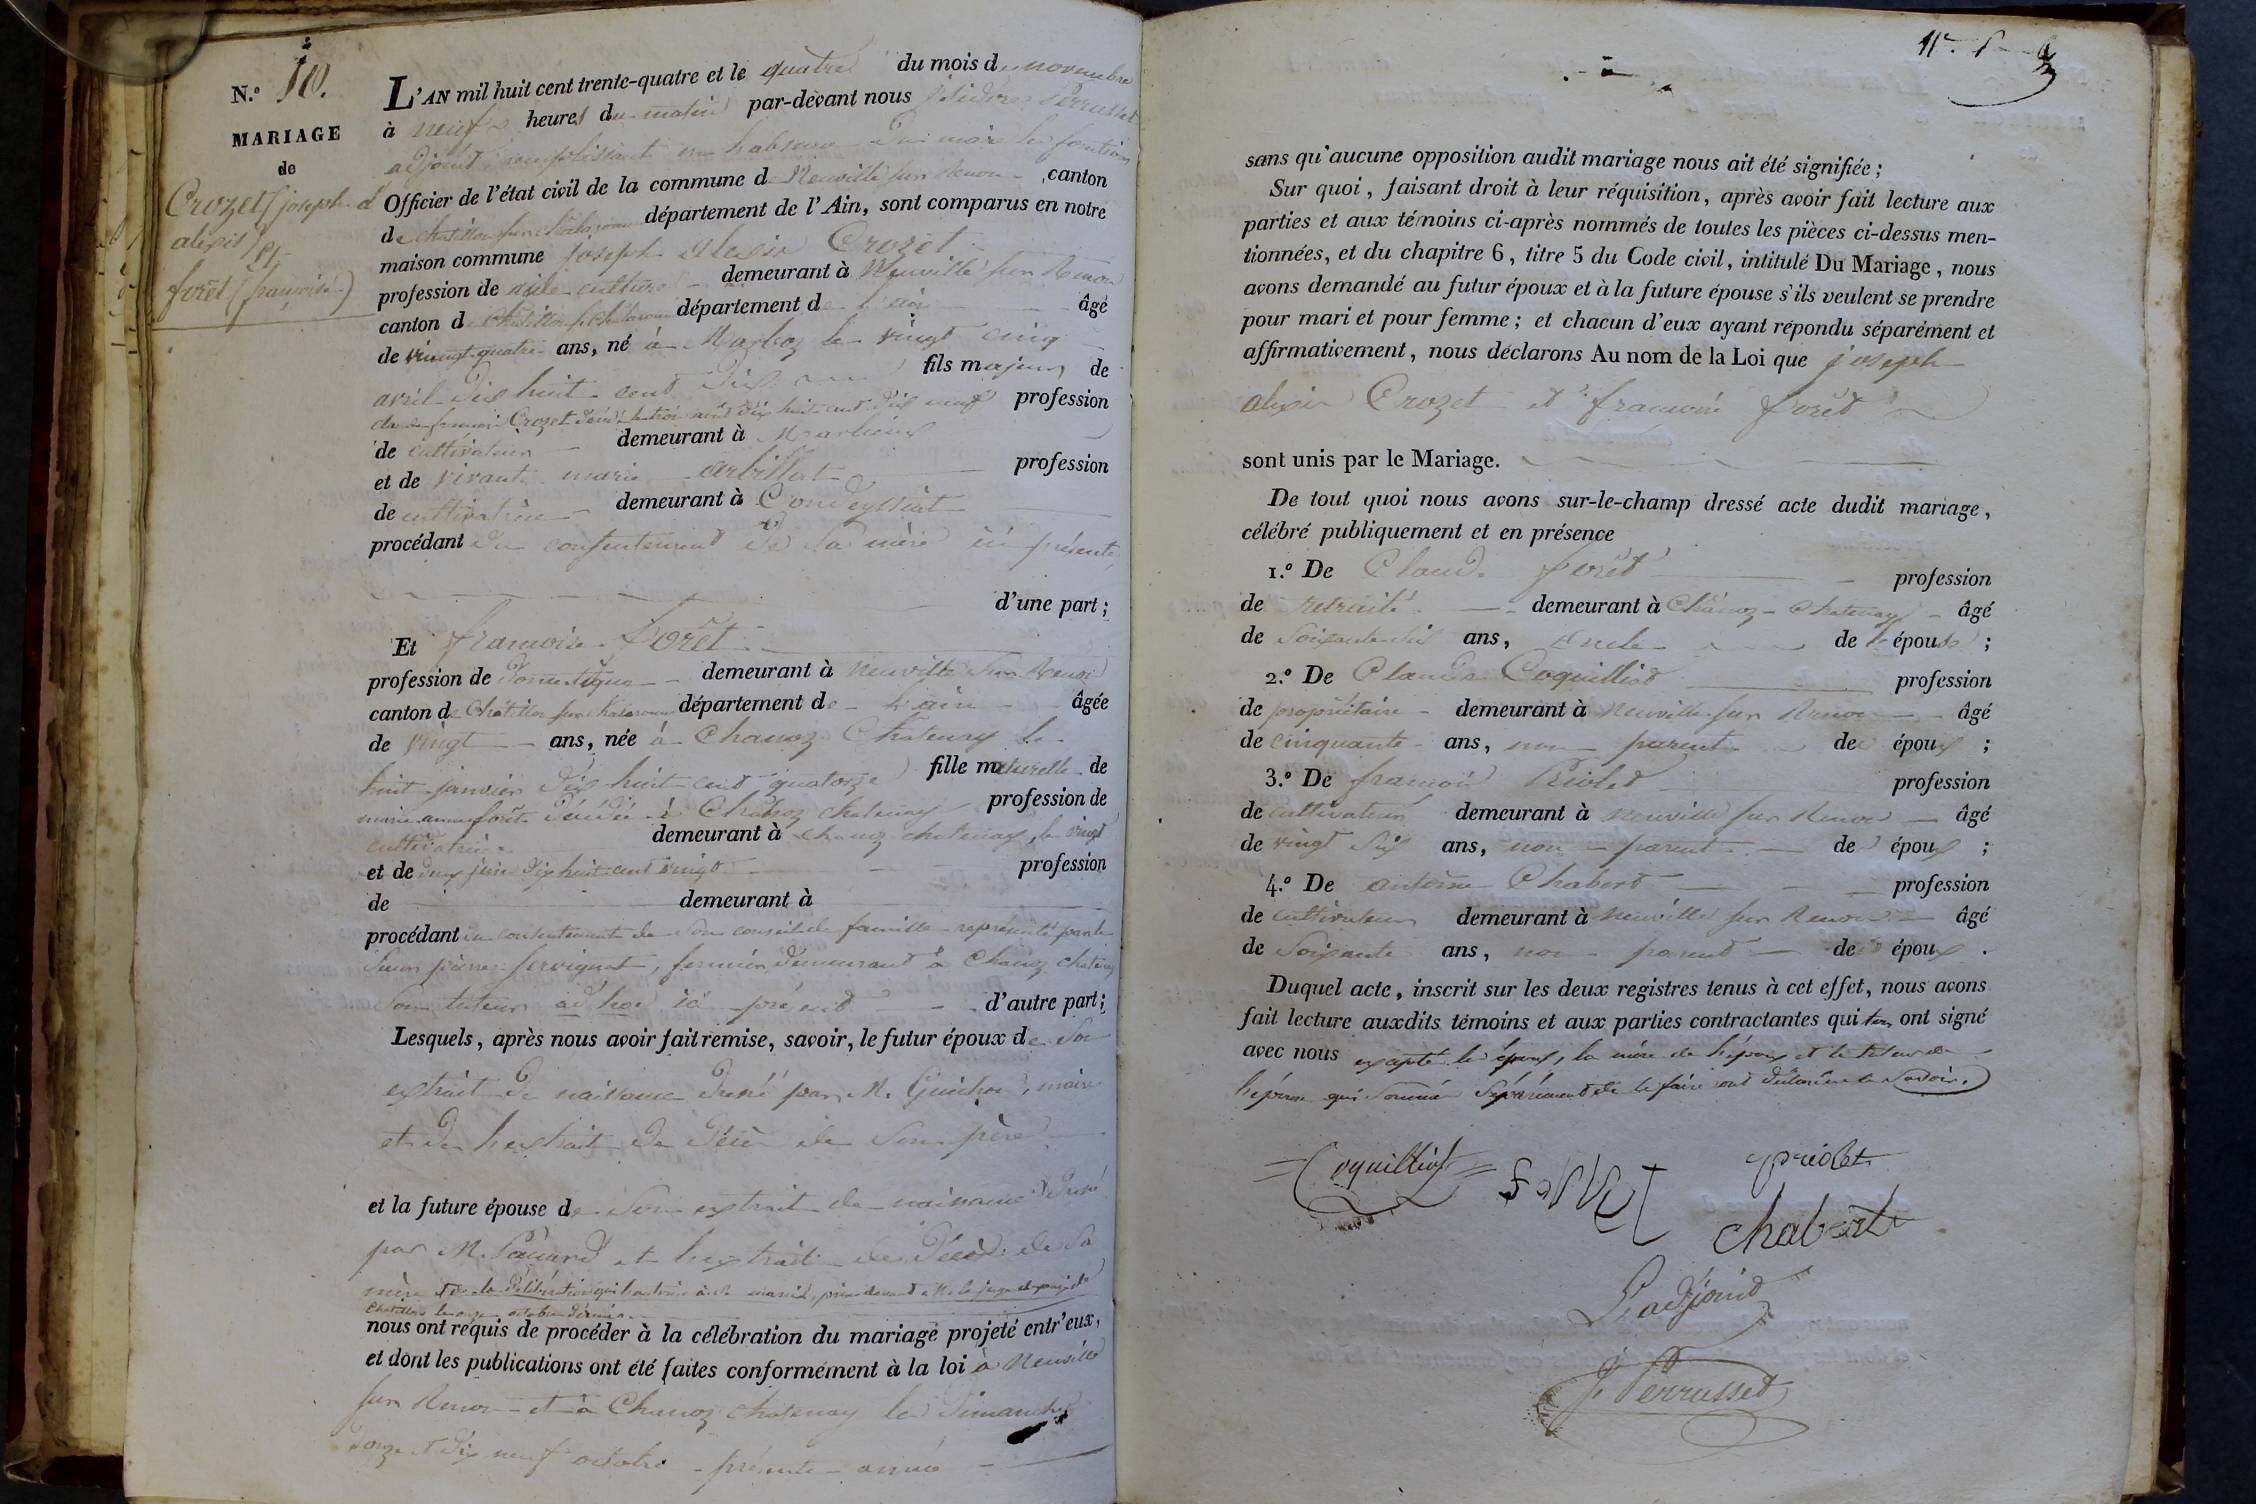 N.º 10.
MARIAGE
de
Crozet (joseph
alexis) et
forêt (françoise)
L'AN mil huit cent trente-quatre et le quatre du mois de novembre
à neuf heures du matin par-devant nous Perrusset
adjoint remplissant en l'absence du maire les fonctions
Officier de l'état civil de la commune de Neuville sur Renon canton
de chatillon sur chalaronne département de l'Ain, sont comparus en notre
maison commune joseph alexis Crozet
profession de cultivateur demeurant à Neuville sur Renon
canton de chatillon s. chalaronne département de l'ain âgé
de vingt-quatre ans, né à Marboz le vingt cinq
avril dix huit cent dix fils majeur de
françois Crozet décédé le trois août dix huit cent dix neuf profession
de cultivateur demeurant à
et de vivante marie arbillat profession
de cultivatrice demeurant à Condeyssiat
procédant du consentement de sa mère ici présente,
d'une part ;
Et françoise forêt
profession de domestique demeurant à neuville sur Renon
canton de chatillon sur chalaronne département de l'ain âgée
de vingt ans, née à Chanoz Chatenay le
huit janvier dix huit cent quatorze fille naturelle de
marie anne forêt décédée à Chanoz chatenay profession de
cultivatrice demeurant à chanoz chatenay, le vingt
et de deux juin dix huit cent vingt profession
de demeurant à
procédant du consentement de son conseil de famille représenté par le
sieur pierre servignat, fermier, demeurant à Chanoz chatenay
son tuteur ad hoc ici présent d'autre part ;
Lesquels, après nous avoir fait remise, savoir, le futur époux de son
extrait de naissance délivré par M. Guichon, maire
et de l'extrait de décès de son père
et la future épouse de son extrait de naissance délivré
par M. et l'extrait de décès de sa
mère et de la délibération qui l'autorise à se marier, prise devant M. le juge de paix de
Chatillon le onze octobre dernier.
nous ont requis de procéder à la célébration du mariage projeté entr'eux,
et dont les publications ont été faites conformément à la loi à Neuville
sur Renon et à Chanoz chatenay les dimanches
et dix neuf octobre présente année
sans qu'aucune opposition audit mariage nous ait été signifiée ;
Sur quoi, faisant droit à leur réquisition, après avoir fait lecture aux
parties et aux témoins ci-après nommés de toutes les pièces ci-dessus men-
tionnées, et du chapitre 6, titre 5 du Code civil, intitulé Du Mariage, nous
avons demandé au futur époux et à la future épouse s'ils veulent se prendre
pour mari et pour femme ; et chacun d'eux ayant répondu séparément et
affirmativement, nous déclarons Au nom de la Loi que joseph
alexis Crozet et françoise forêt
sont unis par le Mariage.
De tout quoi nous avons sur-le-champ dressé acte dudit mariage,
célébré publiquement et en présence
1.º De Claude forêt profession
de retraité demeurant à Chânoz-Chatenay âgé
de Soixante six ans, oncle de l'épouse ;
2.º De Claude Coquillod profession
de propriétaire demeurant à neuville sur Renon âgé
de cinquante ans, non parent des époux ;
3.º De françois Priolet profession
de cultivateur demeurant à neuville sur Renon âgé
de vingt six ans, non parent des époux ;
4.º De antoine Chabert profession
de cultivateur demeurant à Neuville sur Renon âgé
de Soixante ans, non parent des époux .
Duquel acte, inscrit sur les deux registres tenus à cet effet, nous avons
fait lecture auxdits témoins et aux parties contractantes qui tous ont signé
avec nous excepté les époux, la mère de l'époux et le tuteur de
l'épouse qui sommés séparément de le faire ont déclaré ne le savoir.
priolet
chabert
L'adjoint
J. Perrusset